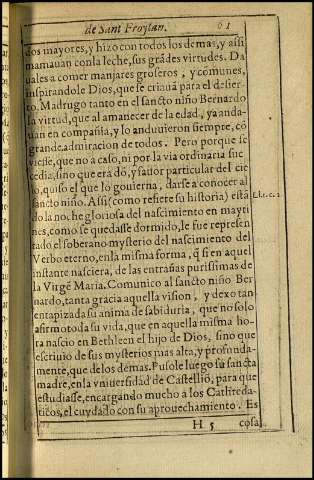 de Sant Froylan. 61
dos mayores, y hizo con todos los demas, y assi
mamauan con la leche, sus grãdes virtudes. Da
uales a comer manjares groseros, y comunes,
inspirandole Dios, que se criaua para el desier-
to. Madrugo tanto en el sancto niño Bernardo
la virtud, que al amanecer de la edad, ya anda-
uan en compañia, y lo anduuieron siempre, cõ
grande admiracion de todos. Pero porque se
viesse, que no a caso, ni por la via ordinaria suc
cedia, sino que era dõ, y fauor particular del cie
lo, quiso el que lo gouierna, darse a conocer al
sancto niño. Assi (como refiere su historia) està
do la noche gloriosa del nascimiento en mayti
nes, como se quedasse dormido, le fue represen
tado el soberano mysterio del nascimiento del
Verbo eterno, en la misma forma, q̃ si en aquel
instante nasciera, de las entrañas purissimas de
la Virgẽ Maria. Comunico al sancto niño Ber
nardo, tanta gracia aquella vision, y dexo tan
entapizada su anima de sabiduria, que no solo
afirmo toda su vida, que en aquella misma ho-
ra nascio en Bethleen el hijo de Dios, sino que
escriuio de sus mysterios mas alta, y profunda-
mente, que de los demas. Pusole luego su sancta
madre, en la vniuersidad de Castelliõ, para que
estudiasse, encargando mucho a los Cathreda-
ticos, el cuydado con su aprouechamiento. Es
H 5 cosa